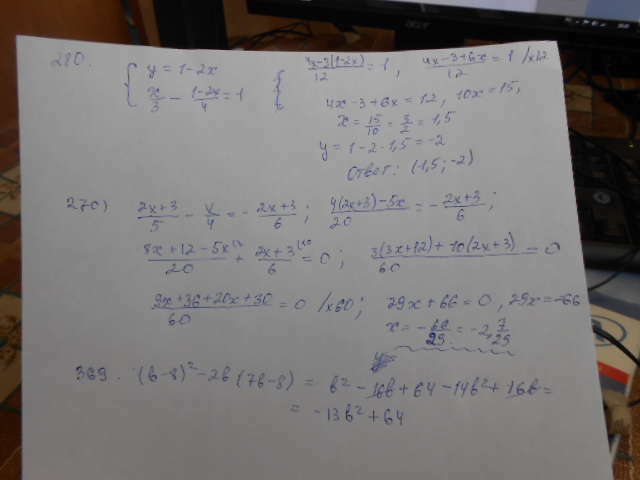 280. { y = 1-2x { 4x-3(1-2x)/12 = 1, 4x-3+6x/12 = 1 /x12
x/3 - (1-2x)/4 = 1
4x-3+6x = 12, 10x = 15,
x = 15/10 = 3/2 = 1,5
y = 1-2·1,5 = -2
Ответ: (1,5; -2)
270) 2x+3/5 - x/4 = - 2x+3/6; 4(2x+3)-5x/20 = - 2x+3/6;
8x+12-5x/20 + 2x+3/6 = 0; 3(3x+12)+10(2x+3)/60 = 0
9x+36+20x+30/60 = 0 /x60; 29x+66 = 0, 29x = -66
x = - 66/29 = -2 7/29
369. (b-8)² - 2b(7b-8) = b² - 16b + 64 - 14b² + 16b =
= -13b² + 64
acer